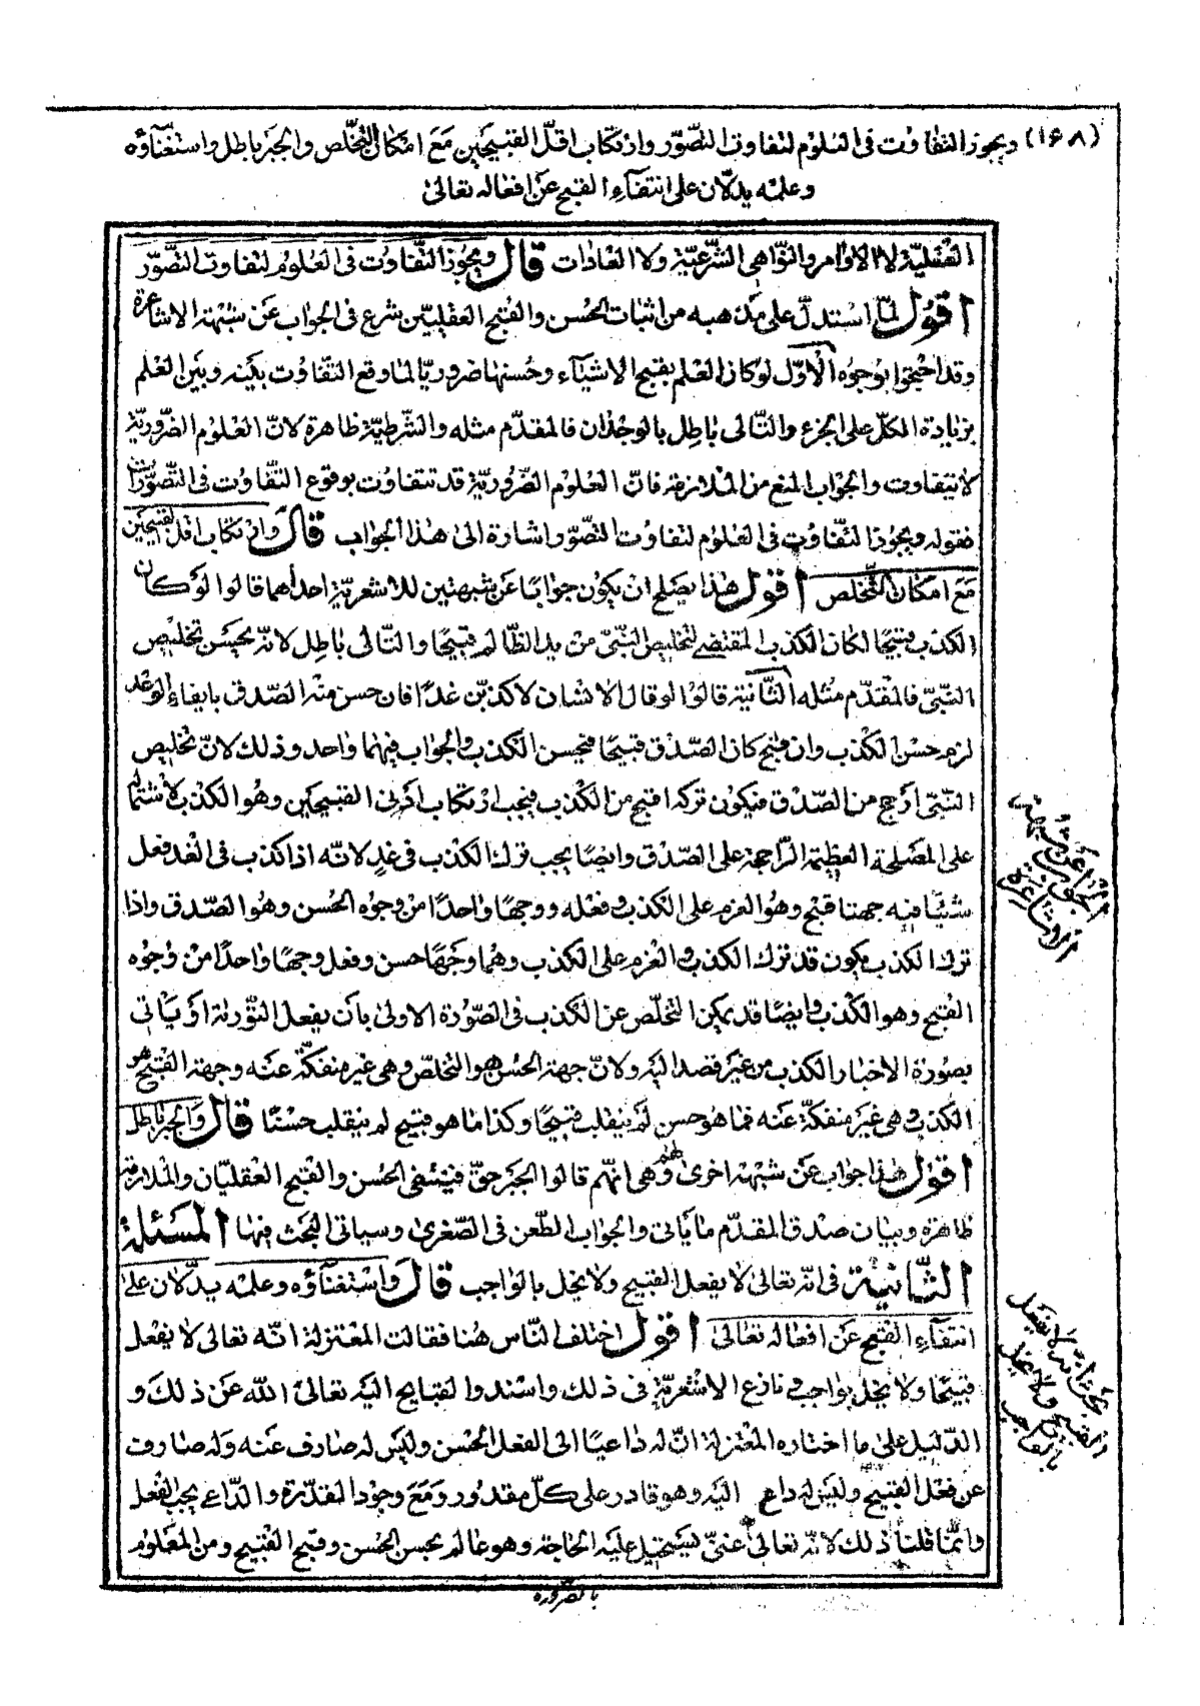 (١٦٨) ويجوز التفاوت فى العلوم لتفاوت التصوّر وارتكاب اقلّ القبيحين مع امكان التخلّص والجبر باطل واستغنآؤه
وعلمه يدلّان على انتفآء القبح عن افعاله تعالى
العقليّة لا الاوامر والنّواهى الشّرعيّة ولا العادات قال ويجوز التّفاوت فى العلوم لتفاوت التصوّر
اقول لمّا استدلّ على مذهبه من اثبات الحسن والقبح العقليّين شرع فى الجواب عن شبهة الاشاعرة
وقد احتجّوا بوجوه الاوّل لو كان العلم بقبح الاشيآء وحسنها ضروريّا لما وقع التّفاوت بينه وبين العلم
بزيادة الكلّ على الجزء والتّالى باطل بالوجدان فالمقدّم مثله والشّرطيّة ظاهرة لانّ العلوم الضّروريّة
لا تتفاوت والجواب المنع من الملازمة فانّ العلوم الضّروريّة قد تتفاوت بوقوع التّفاوت فى التّصوّرات
فقوله ويجوز التّفاوت فى العلوم لتفاوت التصوّر اشارة الى هذا الجواب قال وارتكاب اقلّ القبيحين
مع امكان التّخلص اقول هذا يصلح ان يكون جوابًا عن شبهتين للاشعريّة احداهما قالوا لو كان
الكذب قبيحًا لكان الكذب المقتضى لتخليص النّبىّ من يد الظّالم قبيحًا والتّالى باطل لانّه يحسن تخليص
النّبىّ فالمقدّم مثله الثّانية قالوا لو قال الانسان لاكذبنّ غدًا فان حسن منه الصّدق بايفاء الوعد
لزم حسن الكذب وان قبح كان الصّدق قبيحًا فيحسن الكذب والجواب فيهما واحد وذلك لانّ تخليص
النّبىّ ارجح من الصّدق فيكون تركه اقبح من الكذب فيجب ارتكاب ادنى القبيحين وهو الكذب لاشتماله
على المصلحة العظيمة الرّاجحة على الصّدق وايضًا يجب ترك الكذب فى غدٍ لانّه اذا كذب فى الغد فعل
شيئًا فيه جهتا قبح وهو العزم على الكذب وفعله ووجهًا واحدًا من وجوه الحسن وهو الصّدق واذا
ترك الكذب يكون قد ترك الكذب والعزم على الكذب وهما وجهًا حسن وفعل وجهًا واحدًا من وجوه
القبح وهو الكذب وايضًا قد يمكن التخلّص عن الكذب فى الصّورة الاولى بأن يفعل التّورية او يأتى
بصورة الاخبار الكذب من غير قصد اليه ولانّ جهة الحسن هو التخلّص وهى غير منفكّة عنه وجهة القبح هو
الكذب وهى غير منفكّة عنه فما هو حسن لم ينقلب قبيحًا وكذا ما هو قبيح لم ينقلب حسنًا قال والجبر باطل
اقول هذا جواب عن شبهة اخرى لهم وهى انّهم قالوا الجبر حقّ فينتفى الحسن والقبح العقليّان والملازمة
ظاهرة وبيان صدق المقدّم ما يأتى والجواب الطّعن فى الصّغرى وسياتى البحث فيها المسئلة
الثّانية فى انّه تعالى لا يفعل القبيح ولا يخلّ بالواجب قال واستغنآؤه وعلمه يدلّان على
انتفآء القبح عن افعاله تعالى اقول اختلف النّاس هنا فقالت المعتزلة انّه تعالى لا يفعل
قبيحًا ولا يخلّ بواجب ونازع الاشعريّة فى ذلك واسندوا القبايح اليه تعالى الله عن ذلك و
الدّليل على ما اختاره المعتزلة انّ له داعيًا الى الفعل الحسن وليس له صارف عنه وله صارف
عن فعل القبيح وليس له داع اليه وهو قادر على كلّ مقدور ومع وجود القدرة والدّاعى يجب الفعل
وانّما قلنا ذلك لانّه تعالى غنىّ يستحيل عليه الحاجة وهو عالم بحسن الحسن وقبح القبيح ومن المعلوم
بالضّرورة
الجواب عن شبهة
الاشاعرة
فى انّه لا يفعل
القبيح ولا يخلّ
بالواجب